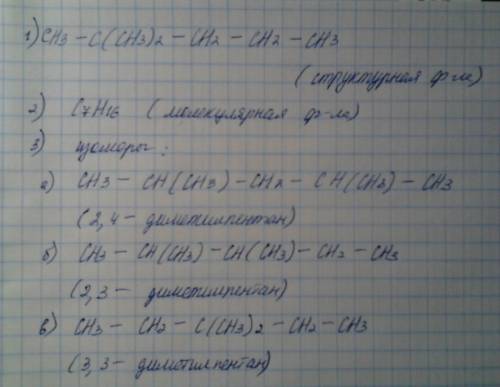 1) CH3 - C(CH3)2 - CH2 - CH2 - CH3
(структурная ф-ла)
2) C7H16 (молекулярная ф-ла)
3) изомеры:
а) CH3 - CH(CH3) - CH2 - CH(CH3) - CH3
(2,4 - диметилпентан)
б) CH3 - CH(CH3) - CH(CH3) - CH2 - CH3
(2,3 - диметилпентан)
в) CH3 - CH2 - C(CH3)2 - CH2 - CH3
(3,3 - диметилпентан)